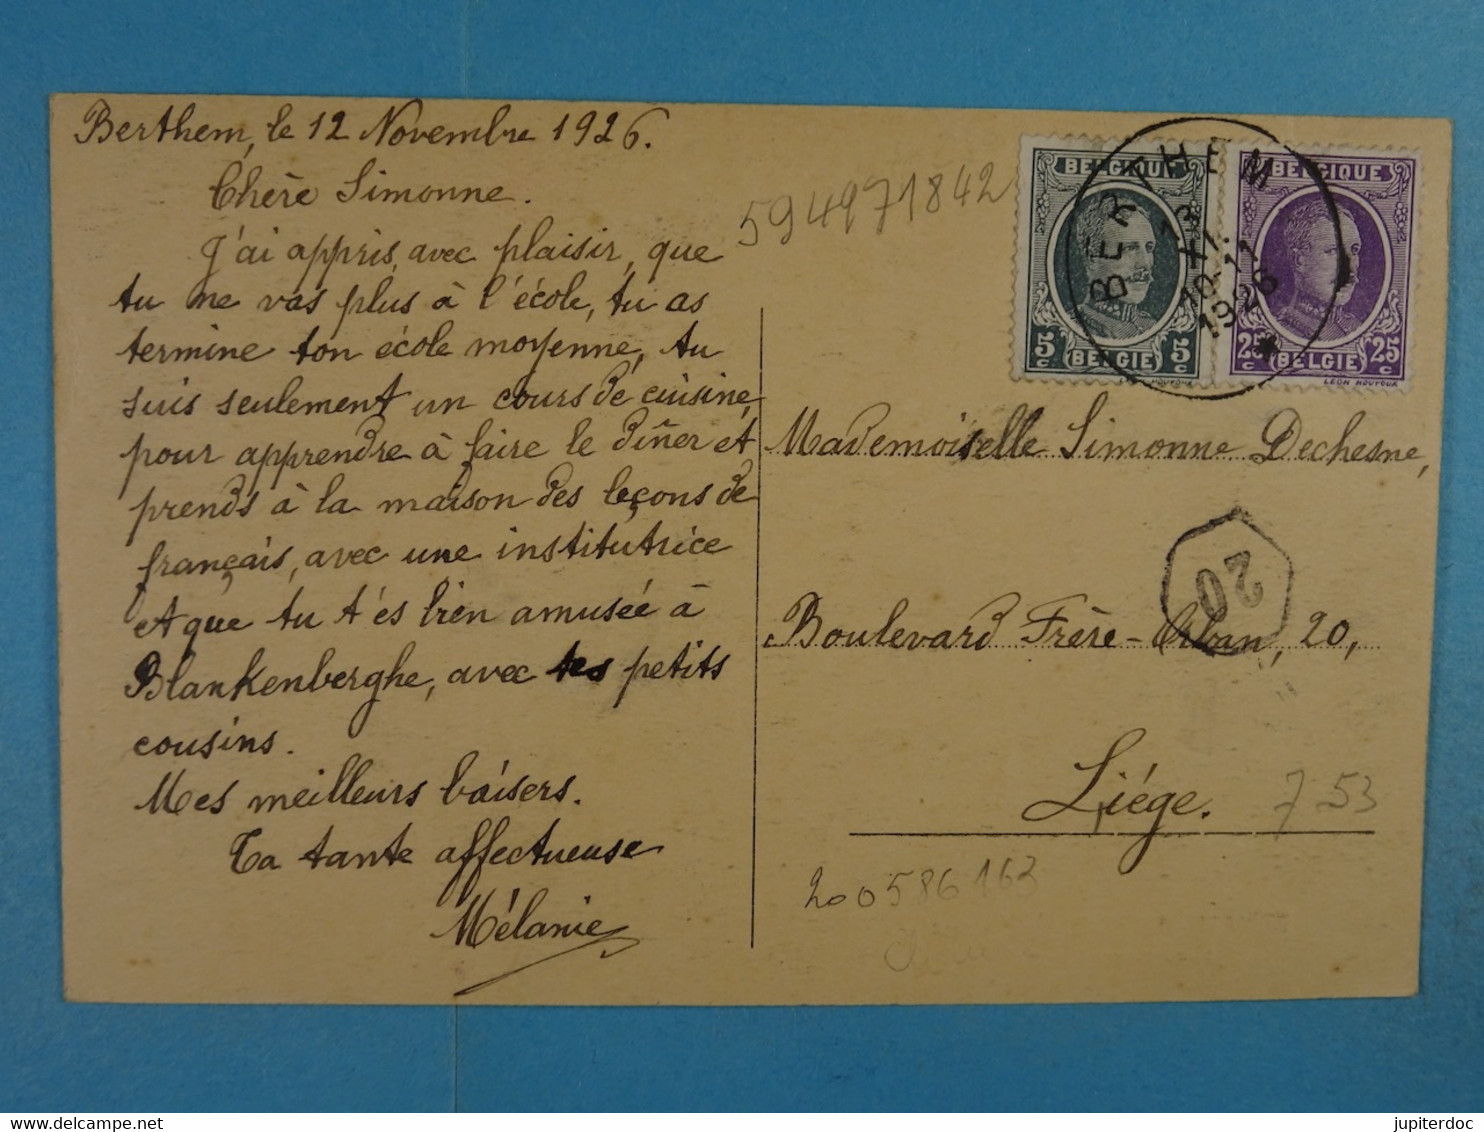 Berthem, le 12 Novembre 1926.
Chère Simonne.
J'ai appris, avec plaisir, que
tu ne vas plus à l'école, tu as
termine ton école moyenne, tu
suis seulement un cours de cuisine,
pour apprendre à faire le dîner et
prends à la maison des leçons de
français, avec une institutrice
et que tu t'és bien amusée à
Blankenberghe, avec tes petits
cousins.
Mes meilleurs baisers.
Ta tante affectueuse
Mélanie
594971842
BELGIQUE
5c BELGIE 5c
HOUYOUX
BELGIQUE
25c BELGIE 25c
LÉON HOUYOUX
BERTHEM
13 XI
10-11
1926
Mademoiselle Simonne Dechesne,
20
Boulevard Frère-Orban, 20,
Liége.
7 53
200586163
jupiterdoc